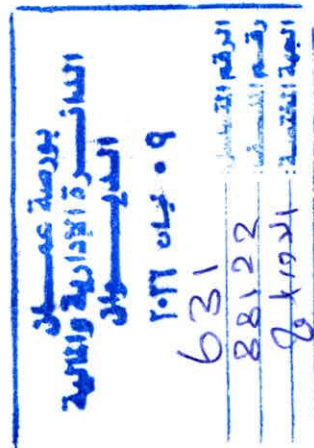 بورصة عمـــان
الدائـــرة الإدارية والمالية
الديـــوان
٠٩ نيسان ٢٠٢٦
الرقم المتسلسل: 631
رقم الملف: 88122
الجهة المختصة: